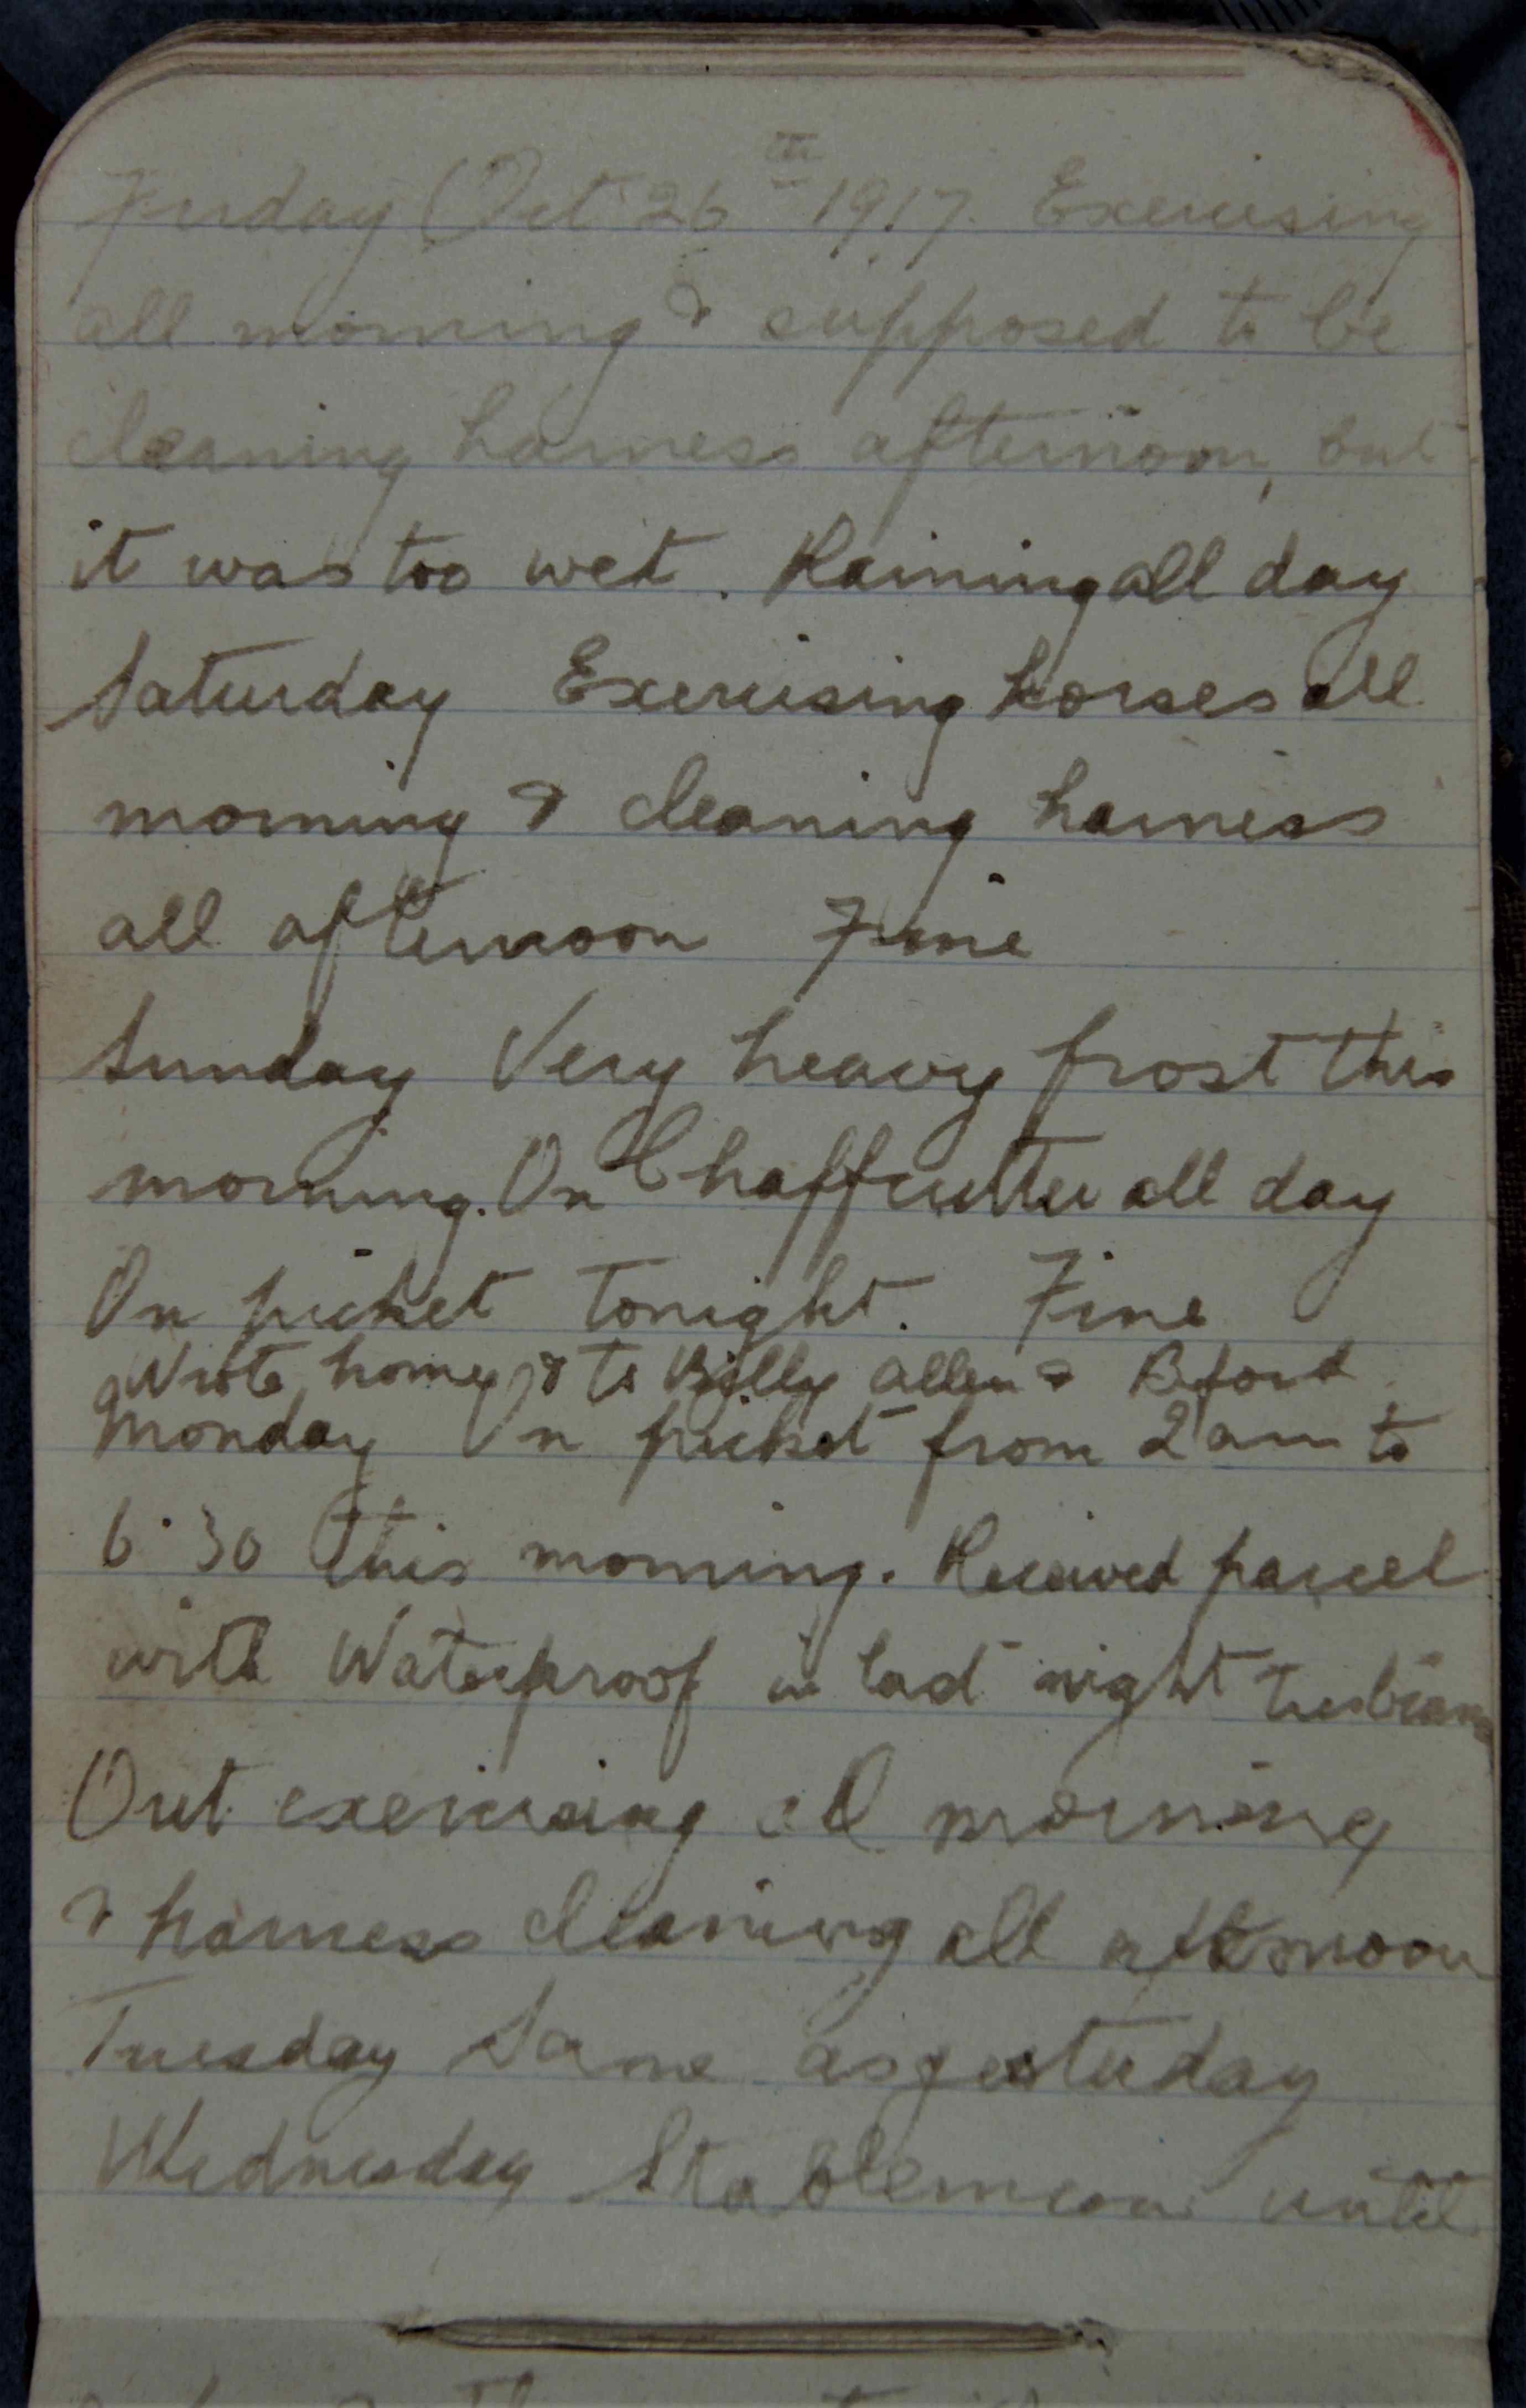 Friday Oct 26th 1917. Exercising
all morning & supposed to be
cleaning harness afternoon, but
it was too wet. Raining all day
Saturday Exercising horses all
morning & cleaning harness
all afternoon Fine
Sunday Very heavy frost this
morning. On Chaffcutter all day
On picket tonight. Fine
Wrote home, & to Billy Allen &
Monday On picket from 2 am to
6.30 this morning. Received parcel
with Waterproof in last night
Out exercising all morning
& harness cleaning all afternoon
Tuesday Same as yesterday
Wednesday Stableman until